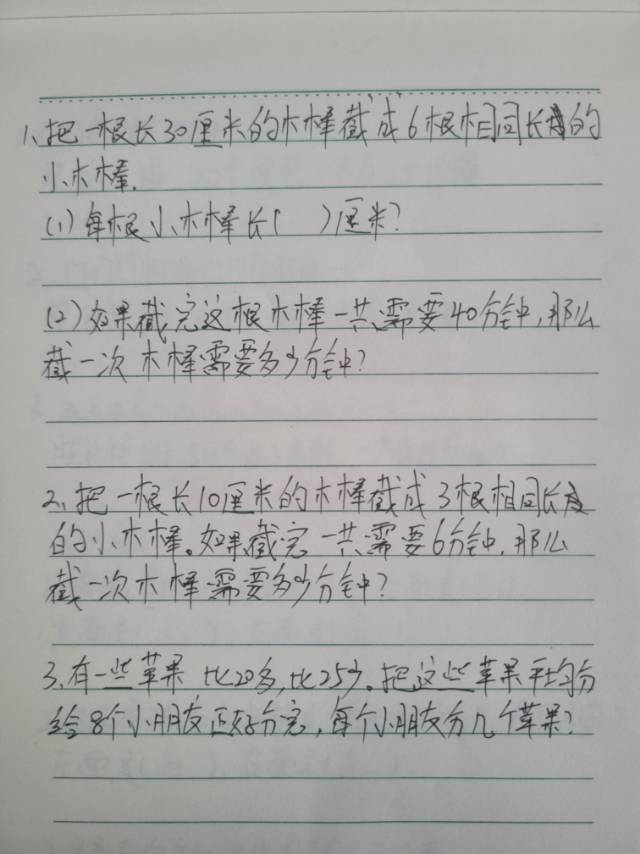 1、把一根长30厘米的木棒截成6根相同长度的
小木棒.
(1)每根小木棒长( )厘米?
(2)如果截完这根木棒一共需要40分钟,那么
截一次木棒需要多少分钟?
2、把一根长10厘米的木棒截成3根相同长度
的小木棒。如果截完一共需要6分钟,那么
截一次木棒需要多少分钟?
3、有一些苹果比20多,比25少。把这些苹果平均分
给8个小朋友正好分完,每个小朋友分几个苹果?